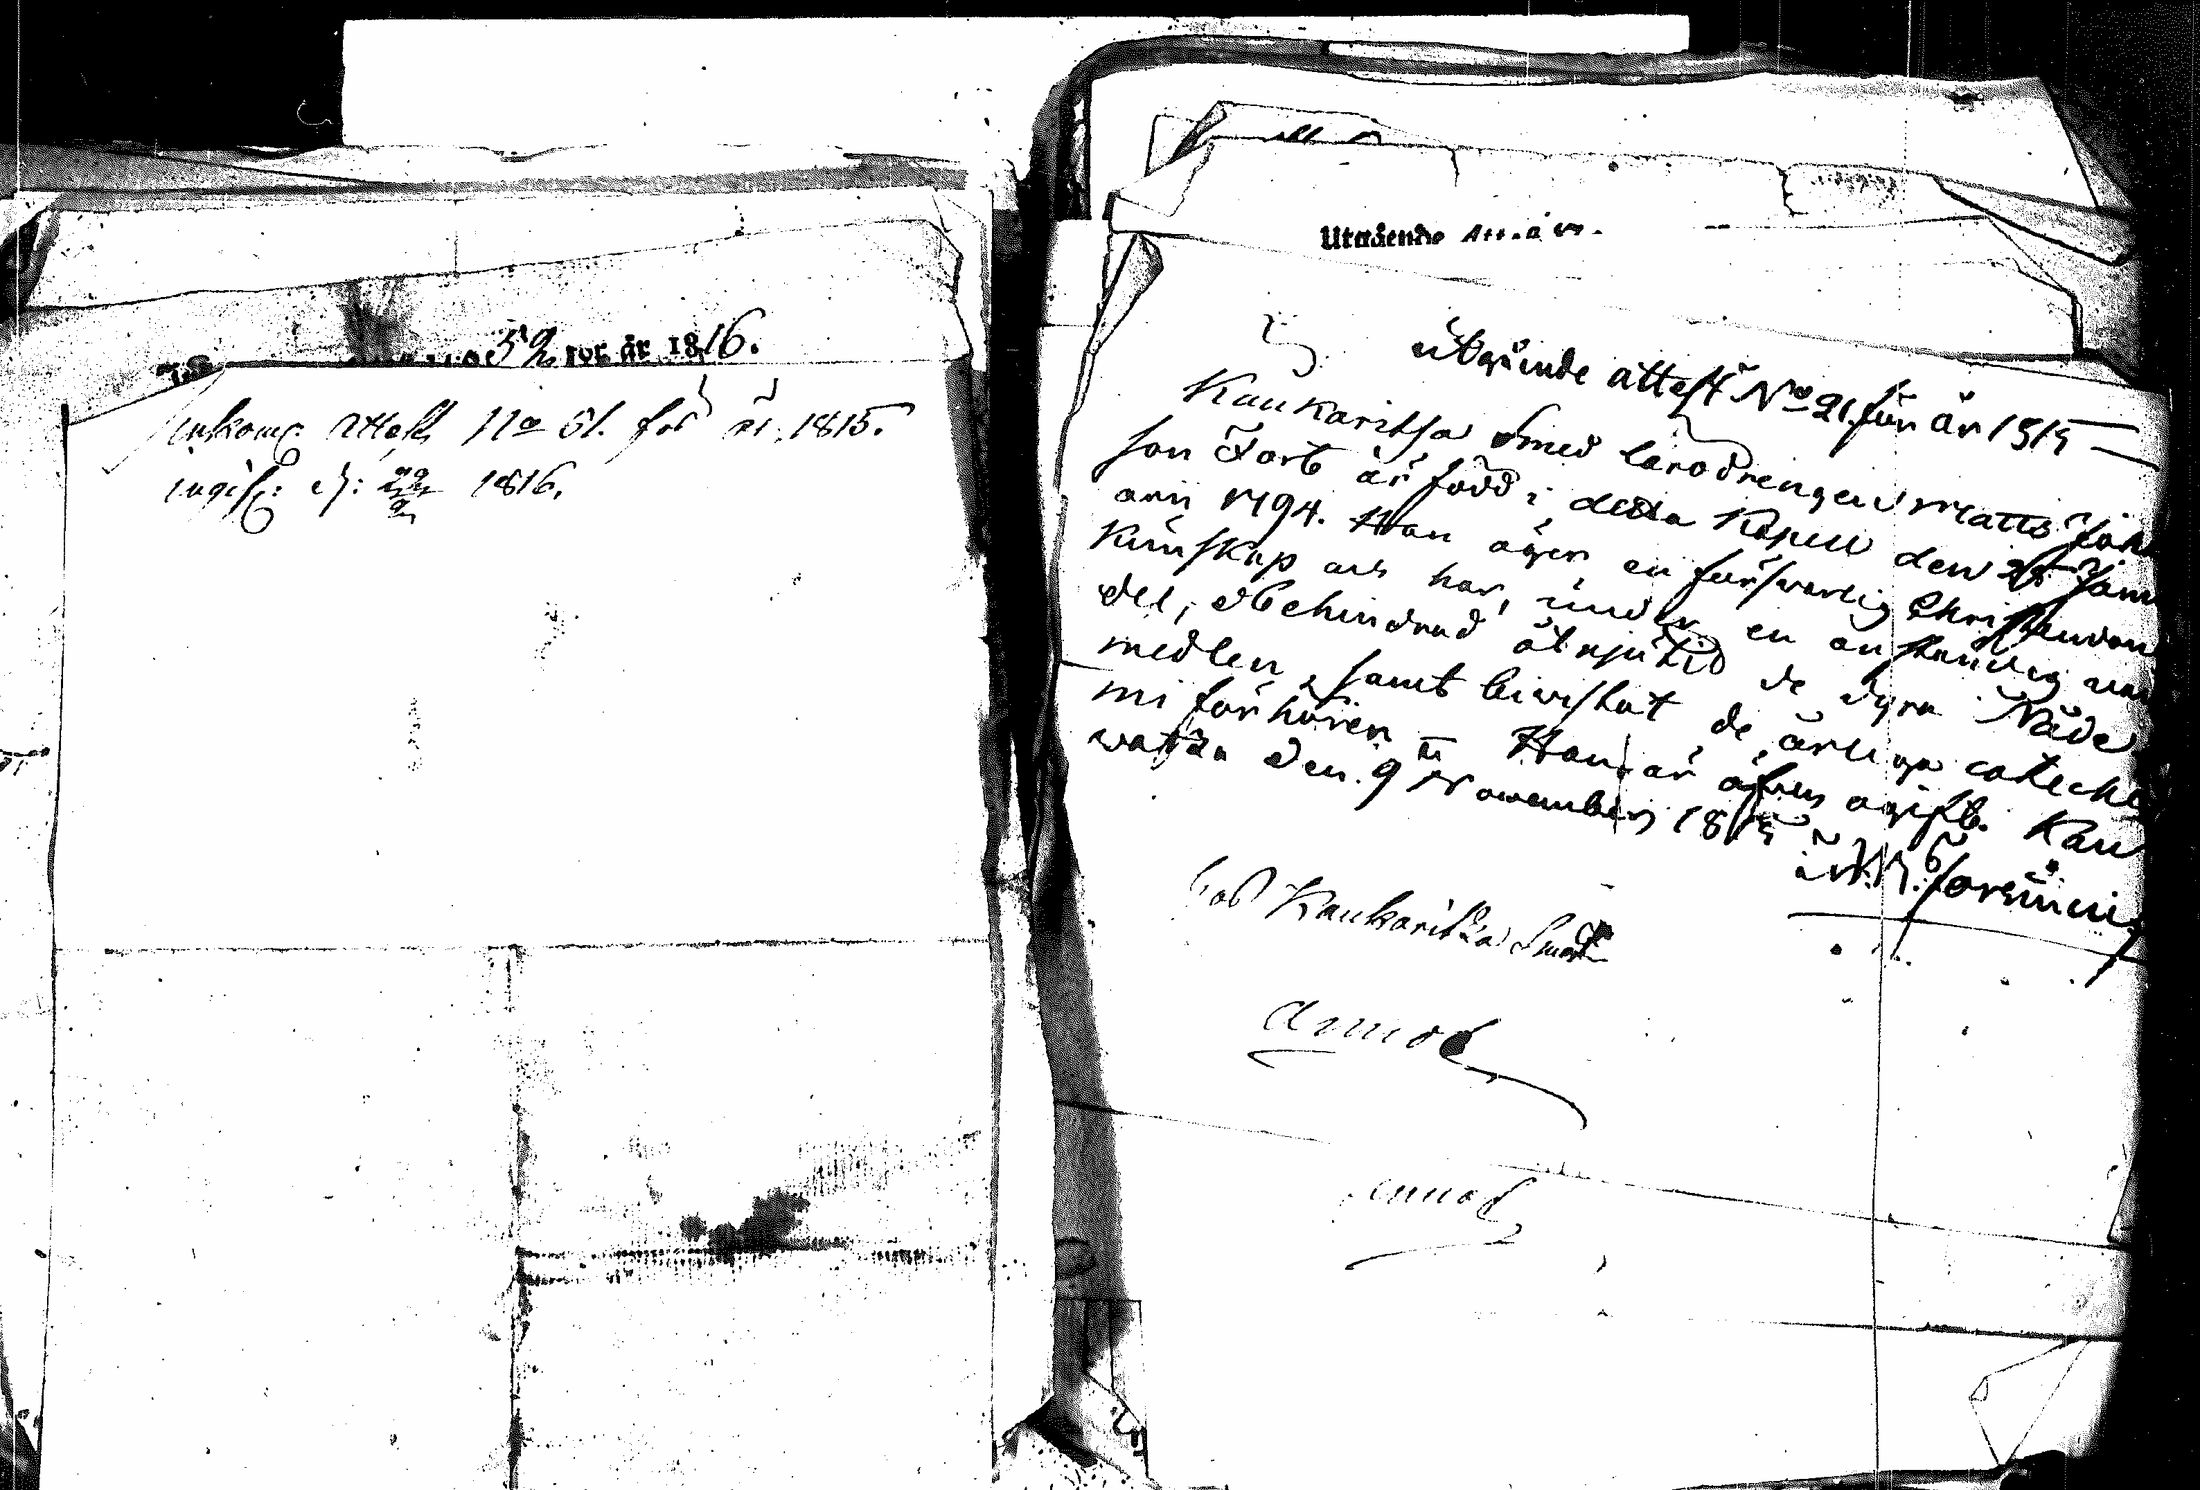 52 för år 1816.
Inkom: Attest No 51. för år 1815.
ingif: d: 22/2 1816.
Utgående Att
Utgående attest No 21. för år 1815
Kaukaritsa Smed lärodrengen Matts Joh
son Fort är född i detta Kapell den 25 Janu
arii 1794. Han äger en försvarlig Christendoms
Kunskap och har, under en anständig van
del, obehindrad åtnjutid de dyra Nåde
medlen, samt bivistat de årliga cateche
mi förhören Han är äfven ogift. Kau
vatza den 9 November 1815
Kaukaritza Smed
Anmod
anmod